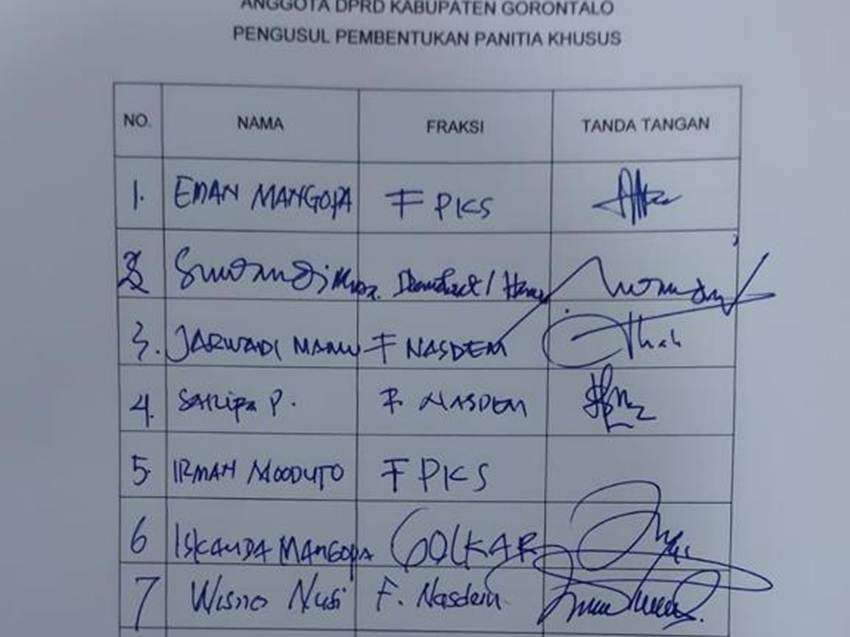 ANGGOTA DPRD KABUPATEN GORONTALO
PENGUSUL PEMBENTUKAN PANITIA KHUSUS
NO. NAMA FRAKSI TANDA TANGAN
1. EMAN MANGOPA F PKS
2
3. JARWADI MAMU F NASDEM
4. SARIPA P. F. NASDEM
5. IRMAN MOODUTO F PKS
6 ISKANDA MANGOPA GOLKAR
7 Wisno Nusi F. Nasdem